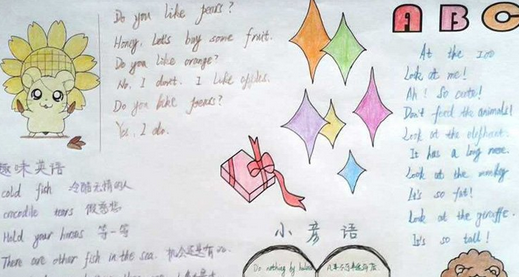 Do you like pears?
Honey. Let's buy some fruit.
Do you like orange?
No, I don't. I like apples.
Do you like pears?
Yes, I do.
趣味英语
cold fish 冷酷无情的人
crocodile tears 假慈悲
Hold your horses 等一等
There are other fish in the sea. 机会还是有的
小 谚 语
Do nothing by halves
凡事不可半途而废
A B C
At the zoo
Look at me!
Ah! So cute!
Don't feed the animals!
Look at the elephant.
It has a long nose.
Look at the monkey
It's so fat!
Look at the giraffe.
It's so tall!